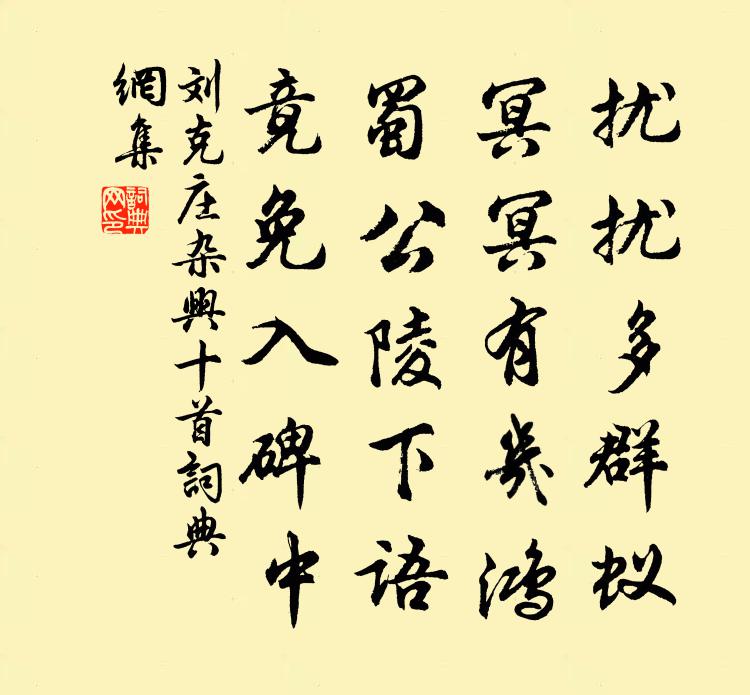 扰扰多群蚁
冥冥有几鸿
蜀公陵下语
竟免入碑中
刘克庄杂興十首詞典
網集
詞典
网印